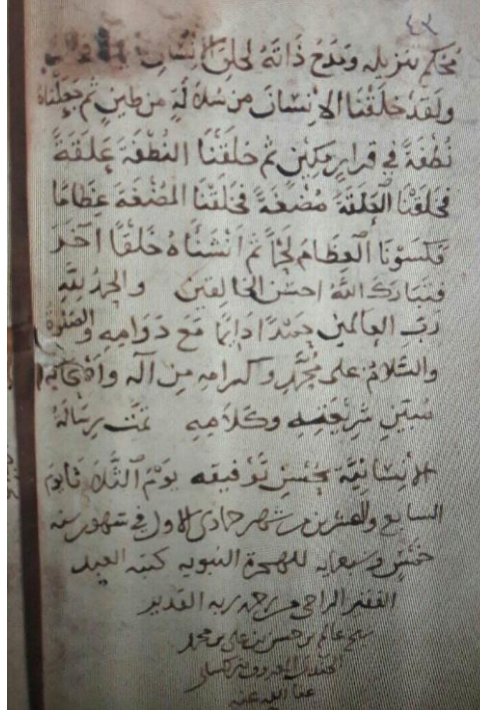 ٤٢
محكم تنزيله ومدح ذاته لخلق الإنسان
ولقد خلقنا الإنسان من سلالة من طين ثم جعلناه
نُطفةً في قرارٍ مكينٍ ثم خلقنا النطفة علقةً
فخلقنا العلقة مُضغةً فخلقنا المضغة عظامًا
فكسونا العظام لحمًا ثم انشأناه خلقًا آخر
فتبارك اللهُ احسن الخالقين والحمد لله
ربّ العالمين حمدًا دايمًا مع دوامه والصلوة
والسّلام على محمدٍ وكرامه من آله واصحابه
مبين شريعته وكلامه تمت رسالة
الإنسانية بحسن توفيقه يوم الثلاثا يوم
السابع والعشرين من شهر جمادى الاول في شهور سنه
خمس وسبعمايه للهجرة النبويه كتبه العبد
الفقير الراجي رحمة ربه القدير
بن حسن بن علي بن محمد
المعروف
عفا الله عنه